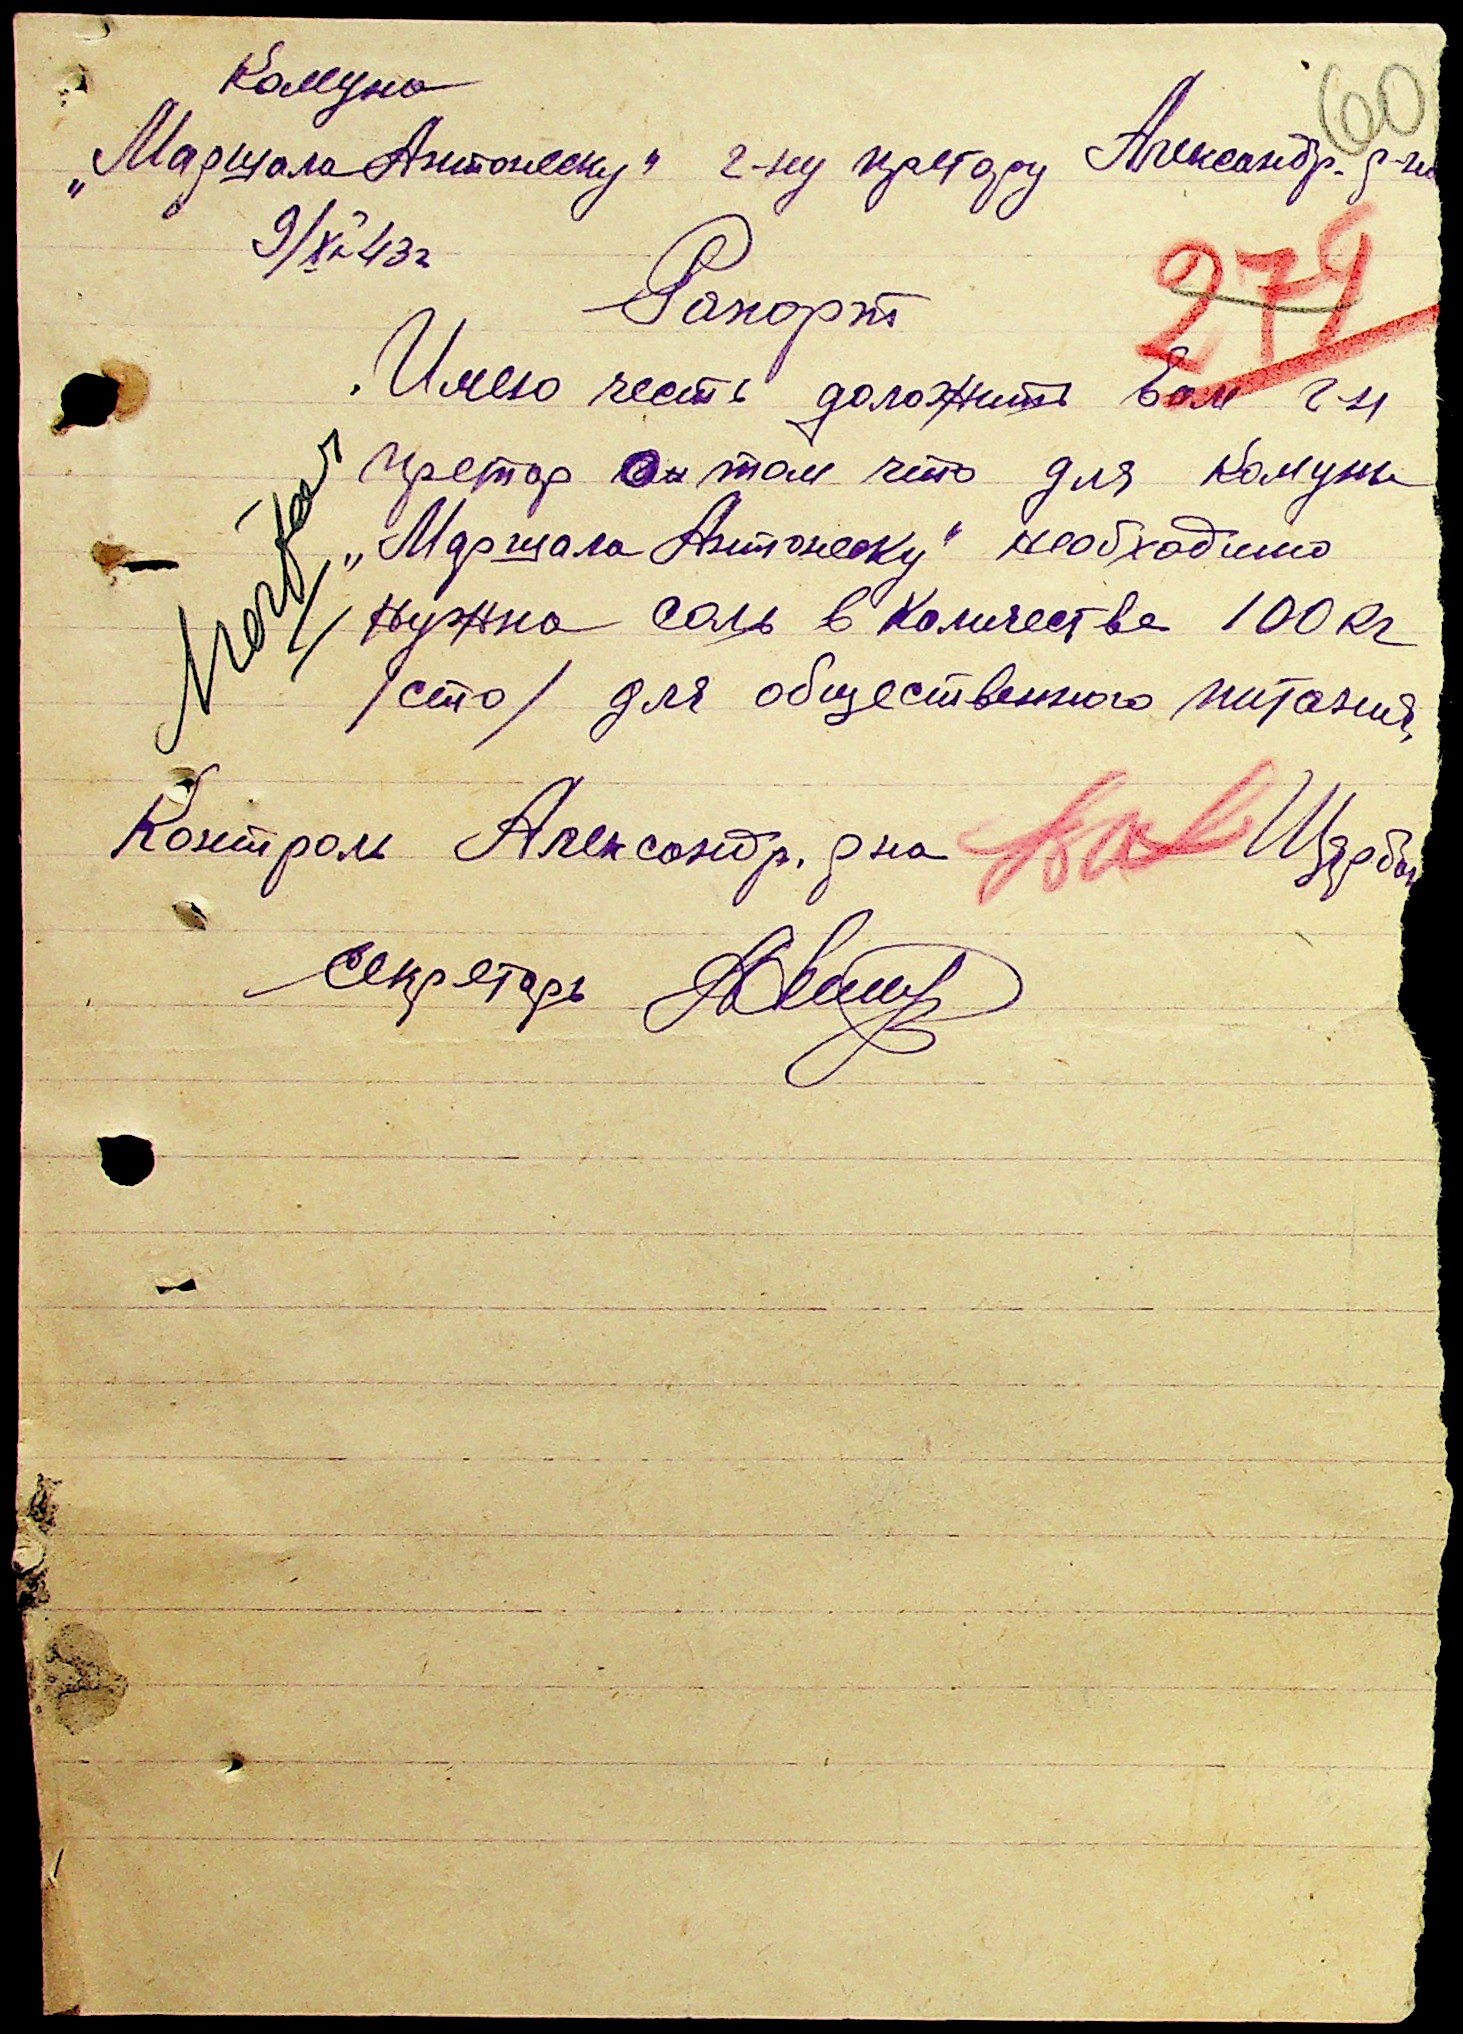 Комуна
60
„Маршала Антонеску“ г-ну претору Александр. р-на
9/XI 43г
279
Рапорт
Имею честь доложить Вам г-н
претор о том что для комуны
„Маршала Антонеску“ необходимо
нужна соль в количестве 100 кг
/сто/ для общественного питания,
Контроль Александр. рна Щерба
секретарь